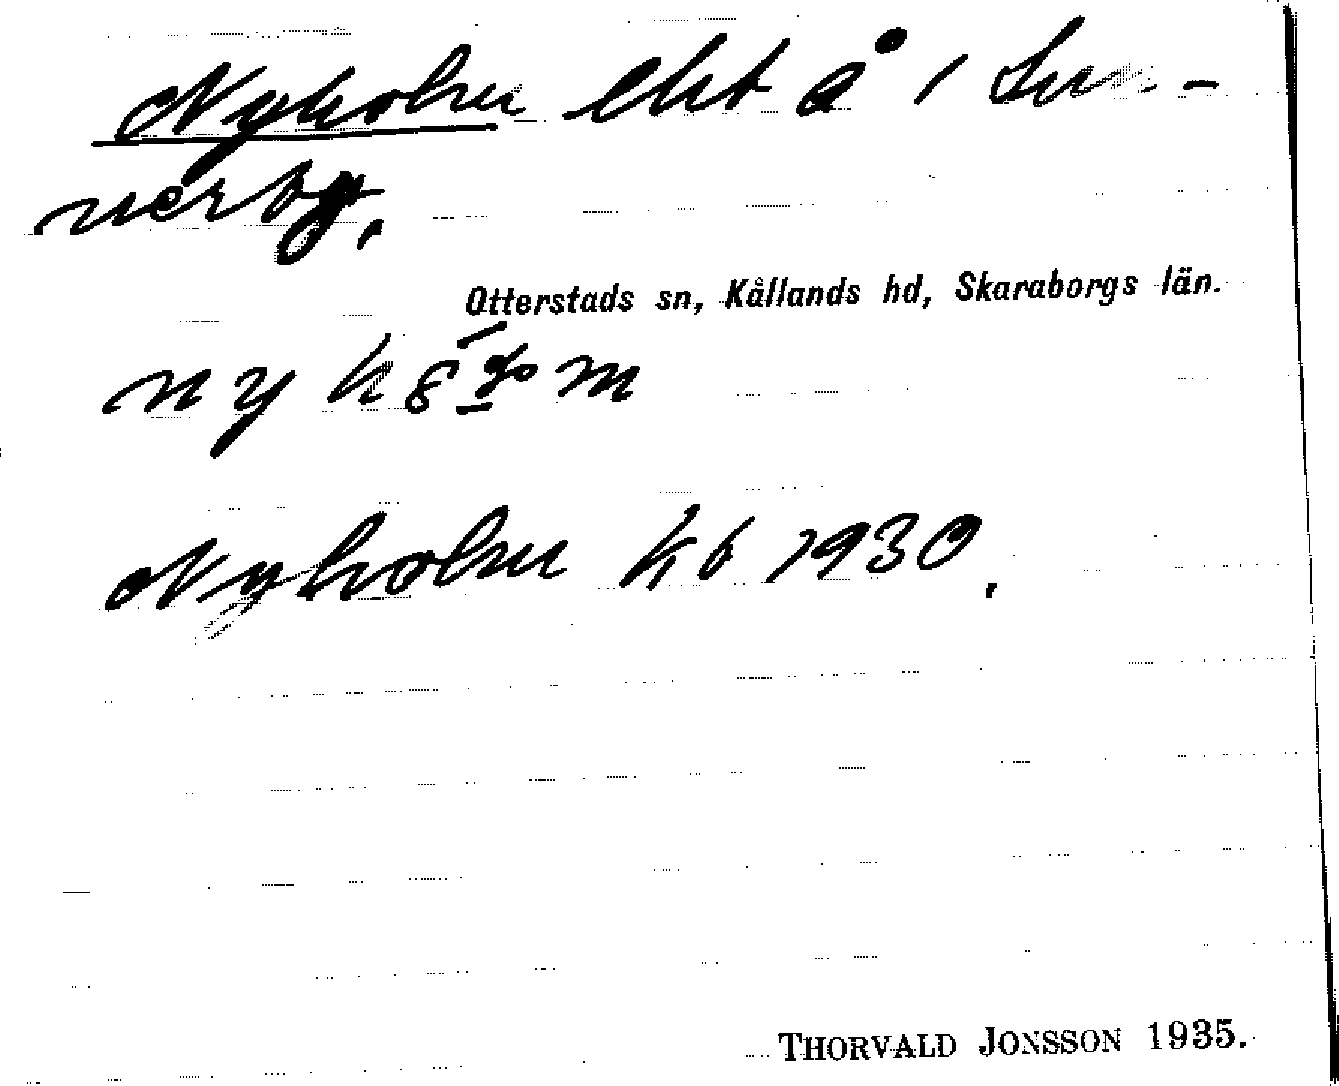 Nyholm lht å 1 Sun-
nerby.
Otterstads sn, Kållands hd, Skaraborgs län.
Nyholm kb 1930.
THORVALD JONSSON 1935.